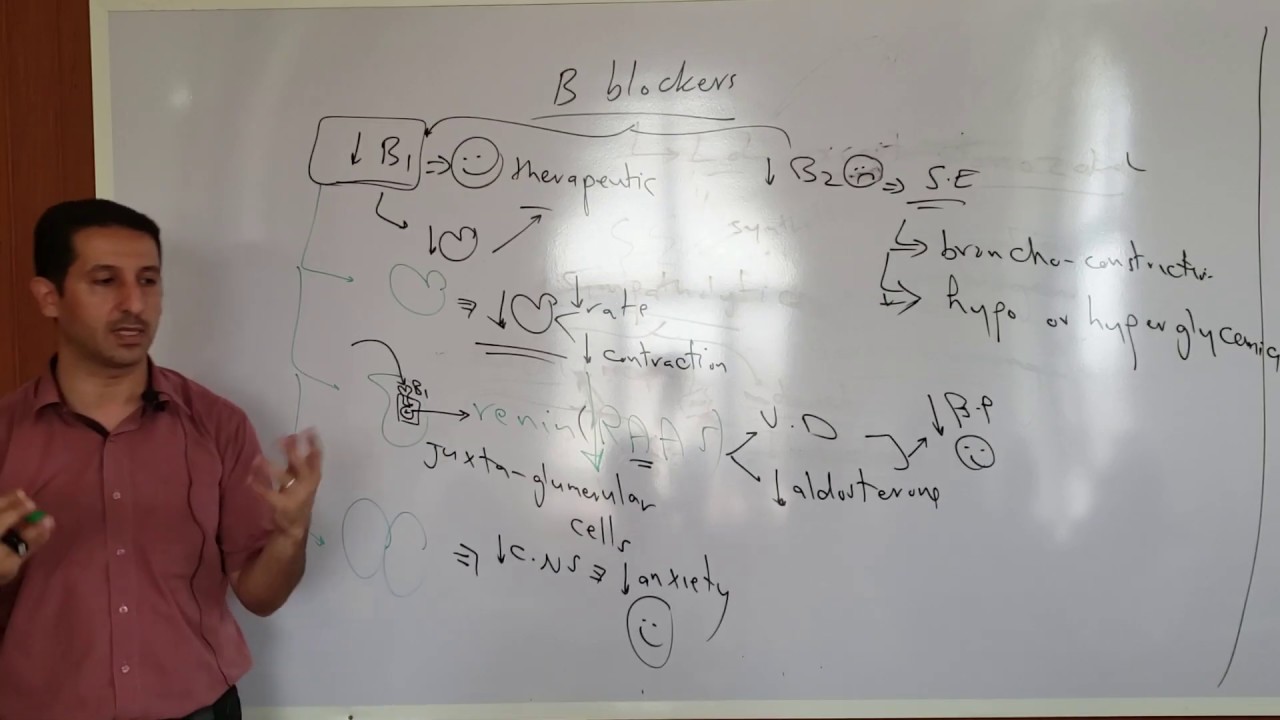 B blockers
↓ B1 ⇒ therapeutic
↓ B2 ⇒ S.E
broncho-constricti
hypo or hyperglycemic
⇒ ↓ ↓ rate
↓ contraction
B1
→ renin (RAAS) V.D
↓ B.P
↓ aldosterone
Juxta-glumerular
cells
⇒ ↓ C.NS ⇒ ↓ anxiety